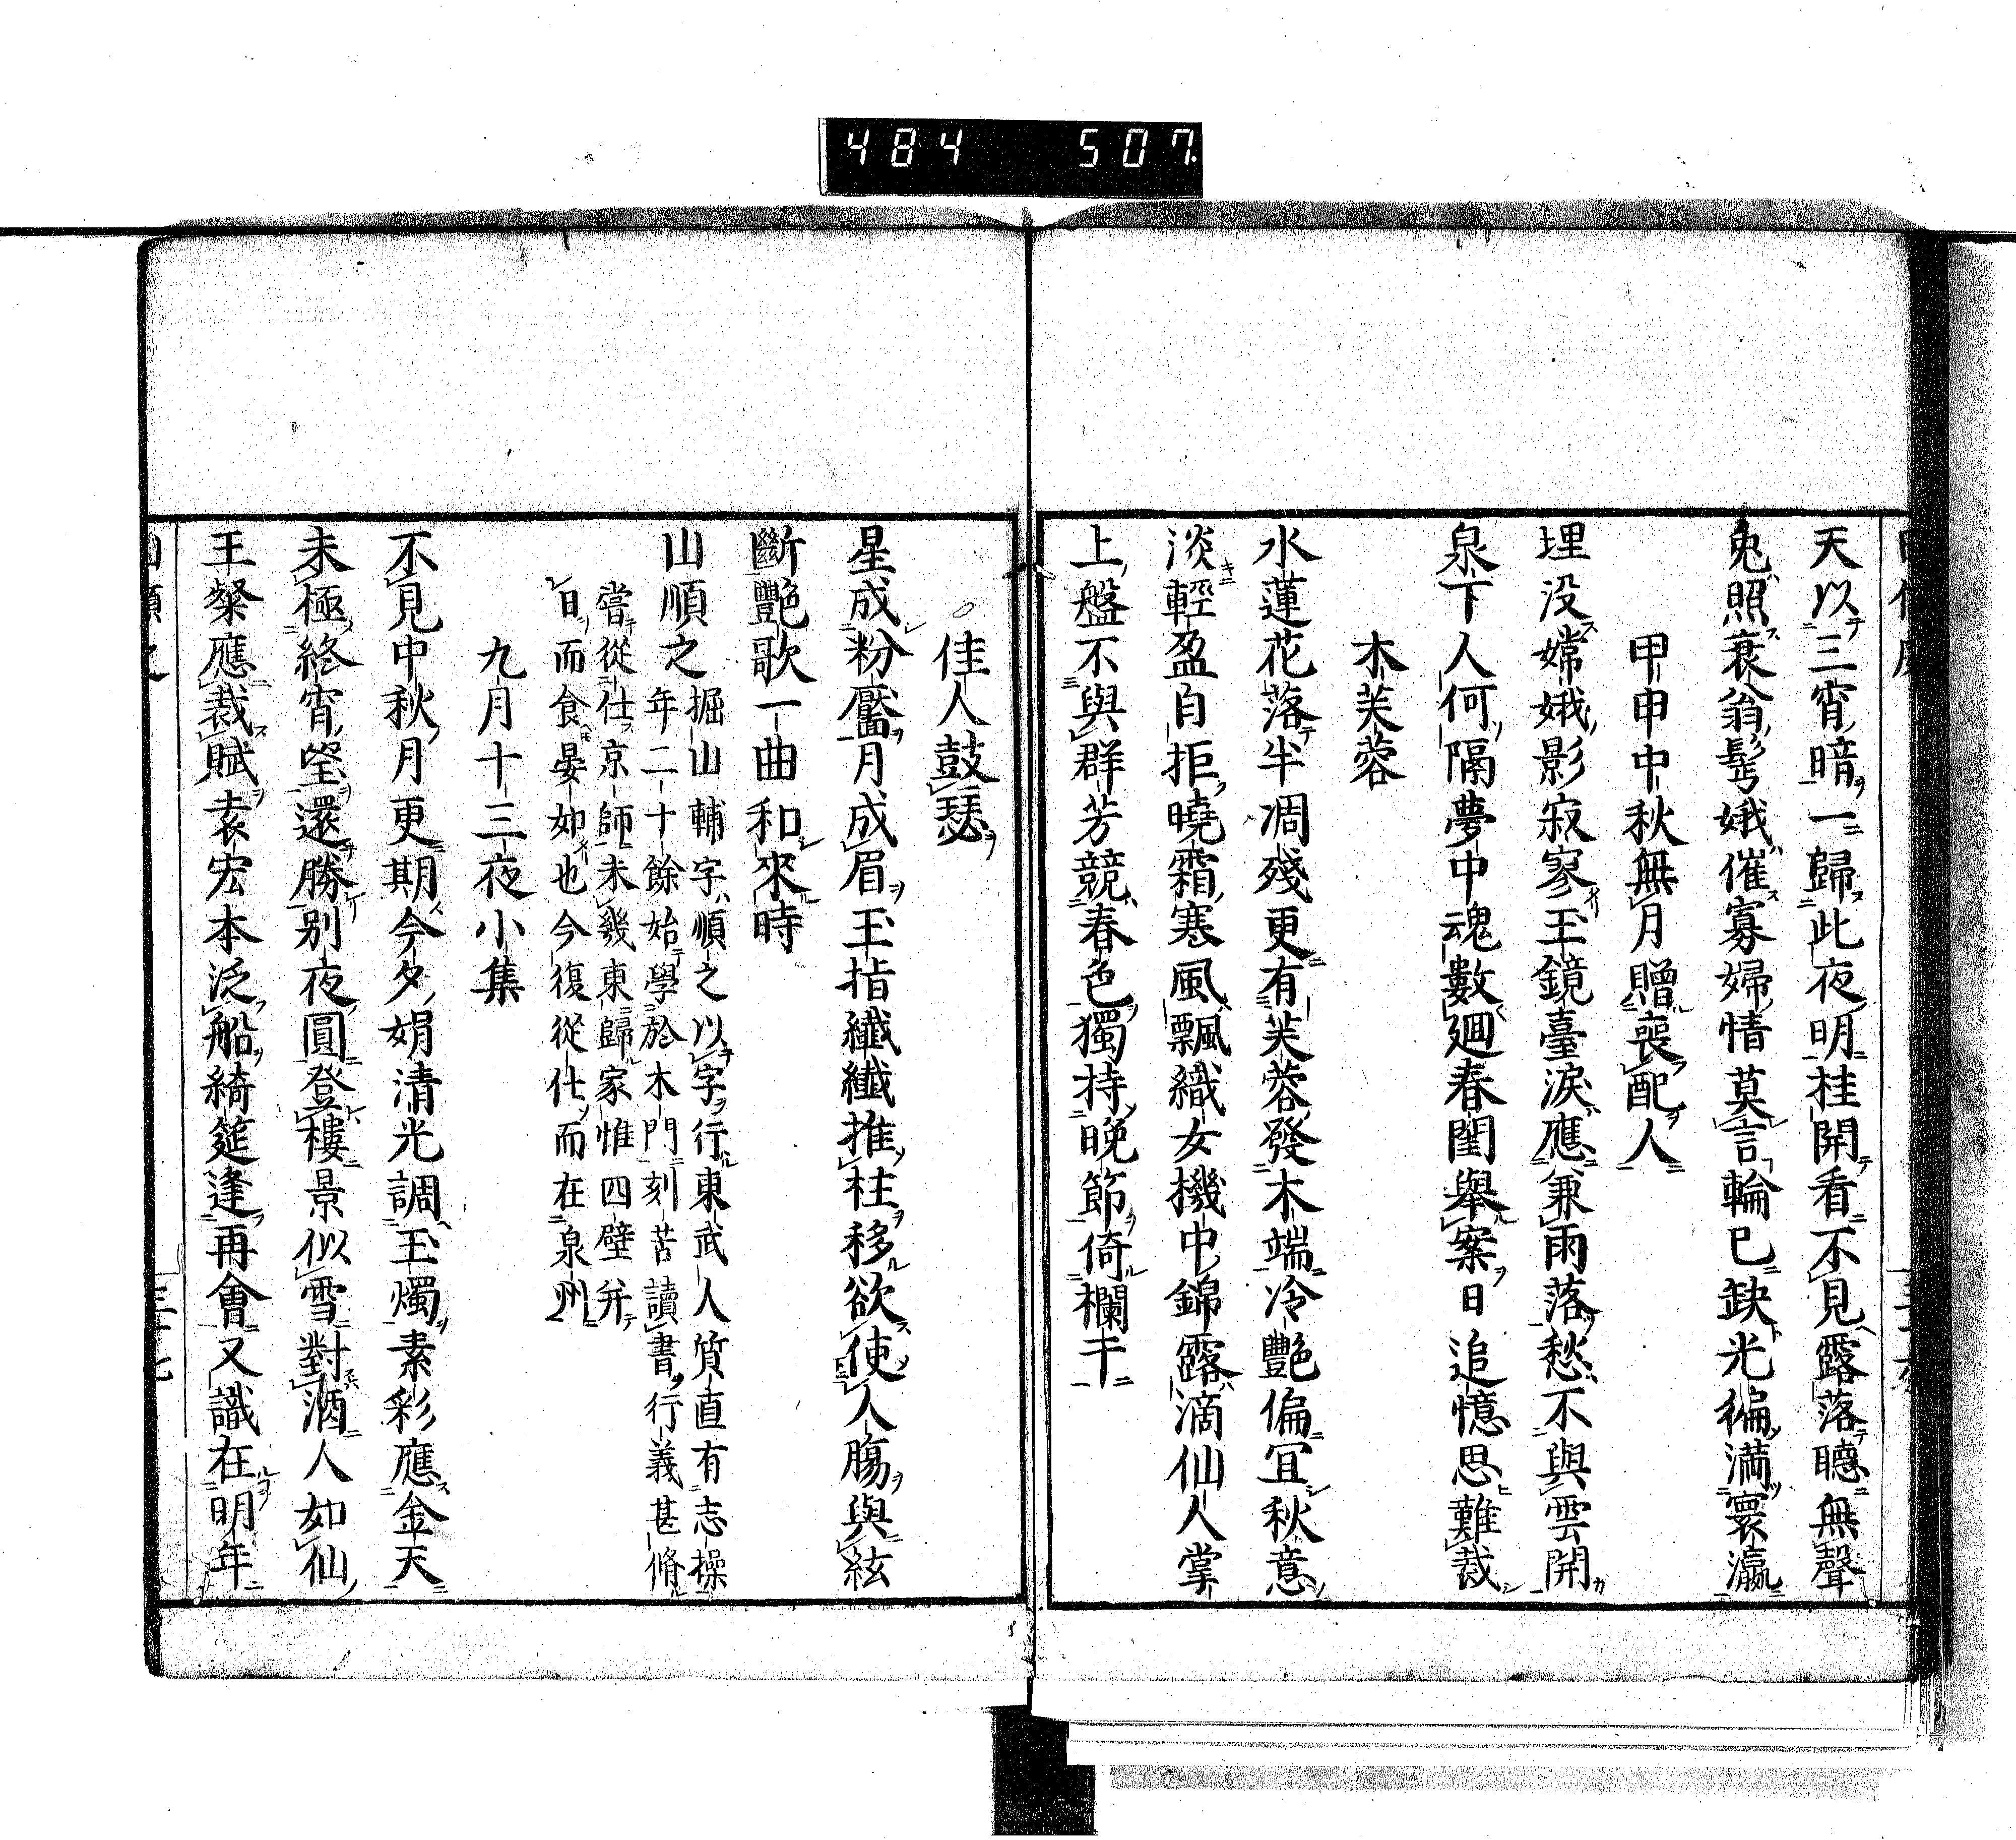 484 507
天以三宵暗一歸此夜明桂開看不見露落聽無聲
兔照衰翁髩娥催寡婦情莫言輪已缺光徧満寰瀛
甲申中秋無月贈喪配人
埋没嫦娥影寂寥玉鏡臺淚應兼雨落愁不與雲開
泉下人何隔夢中魂數廻春閨舉案日追憶思難裁
木芙蓉
水蓮花落半凋殘更有芙蓉發木端冷艷偏冝秋意
淡輕盈自拒曉霜寒風飄織女機中錦露滴仙人掌
上盤不與群芳競春色獨持晚節倚欄干
佳人鼓瑟
星成粉靨月成眉玉指纖纖推柱移欲使人腸與絃
斷艷歌一曲和來時
山順之
掘山輔字順之以字行東武人質直有志操
年二十餘始學於木門刻苦讀書行義甚脩
嘗從仕京師未幾東歸家惟四壁并
日而食晏如也今復從仕而在泉州
九月十三夜小集
不見中秋月更期今夕娟清光調玉燭素彩應金天
未極終宵望還勝别夜圓登樓景似雪對酒人如仙
王粲應裁賦袁宏本泛船綺筵逢再會又識在明年
山順之
三十七